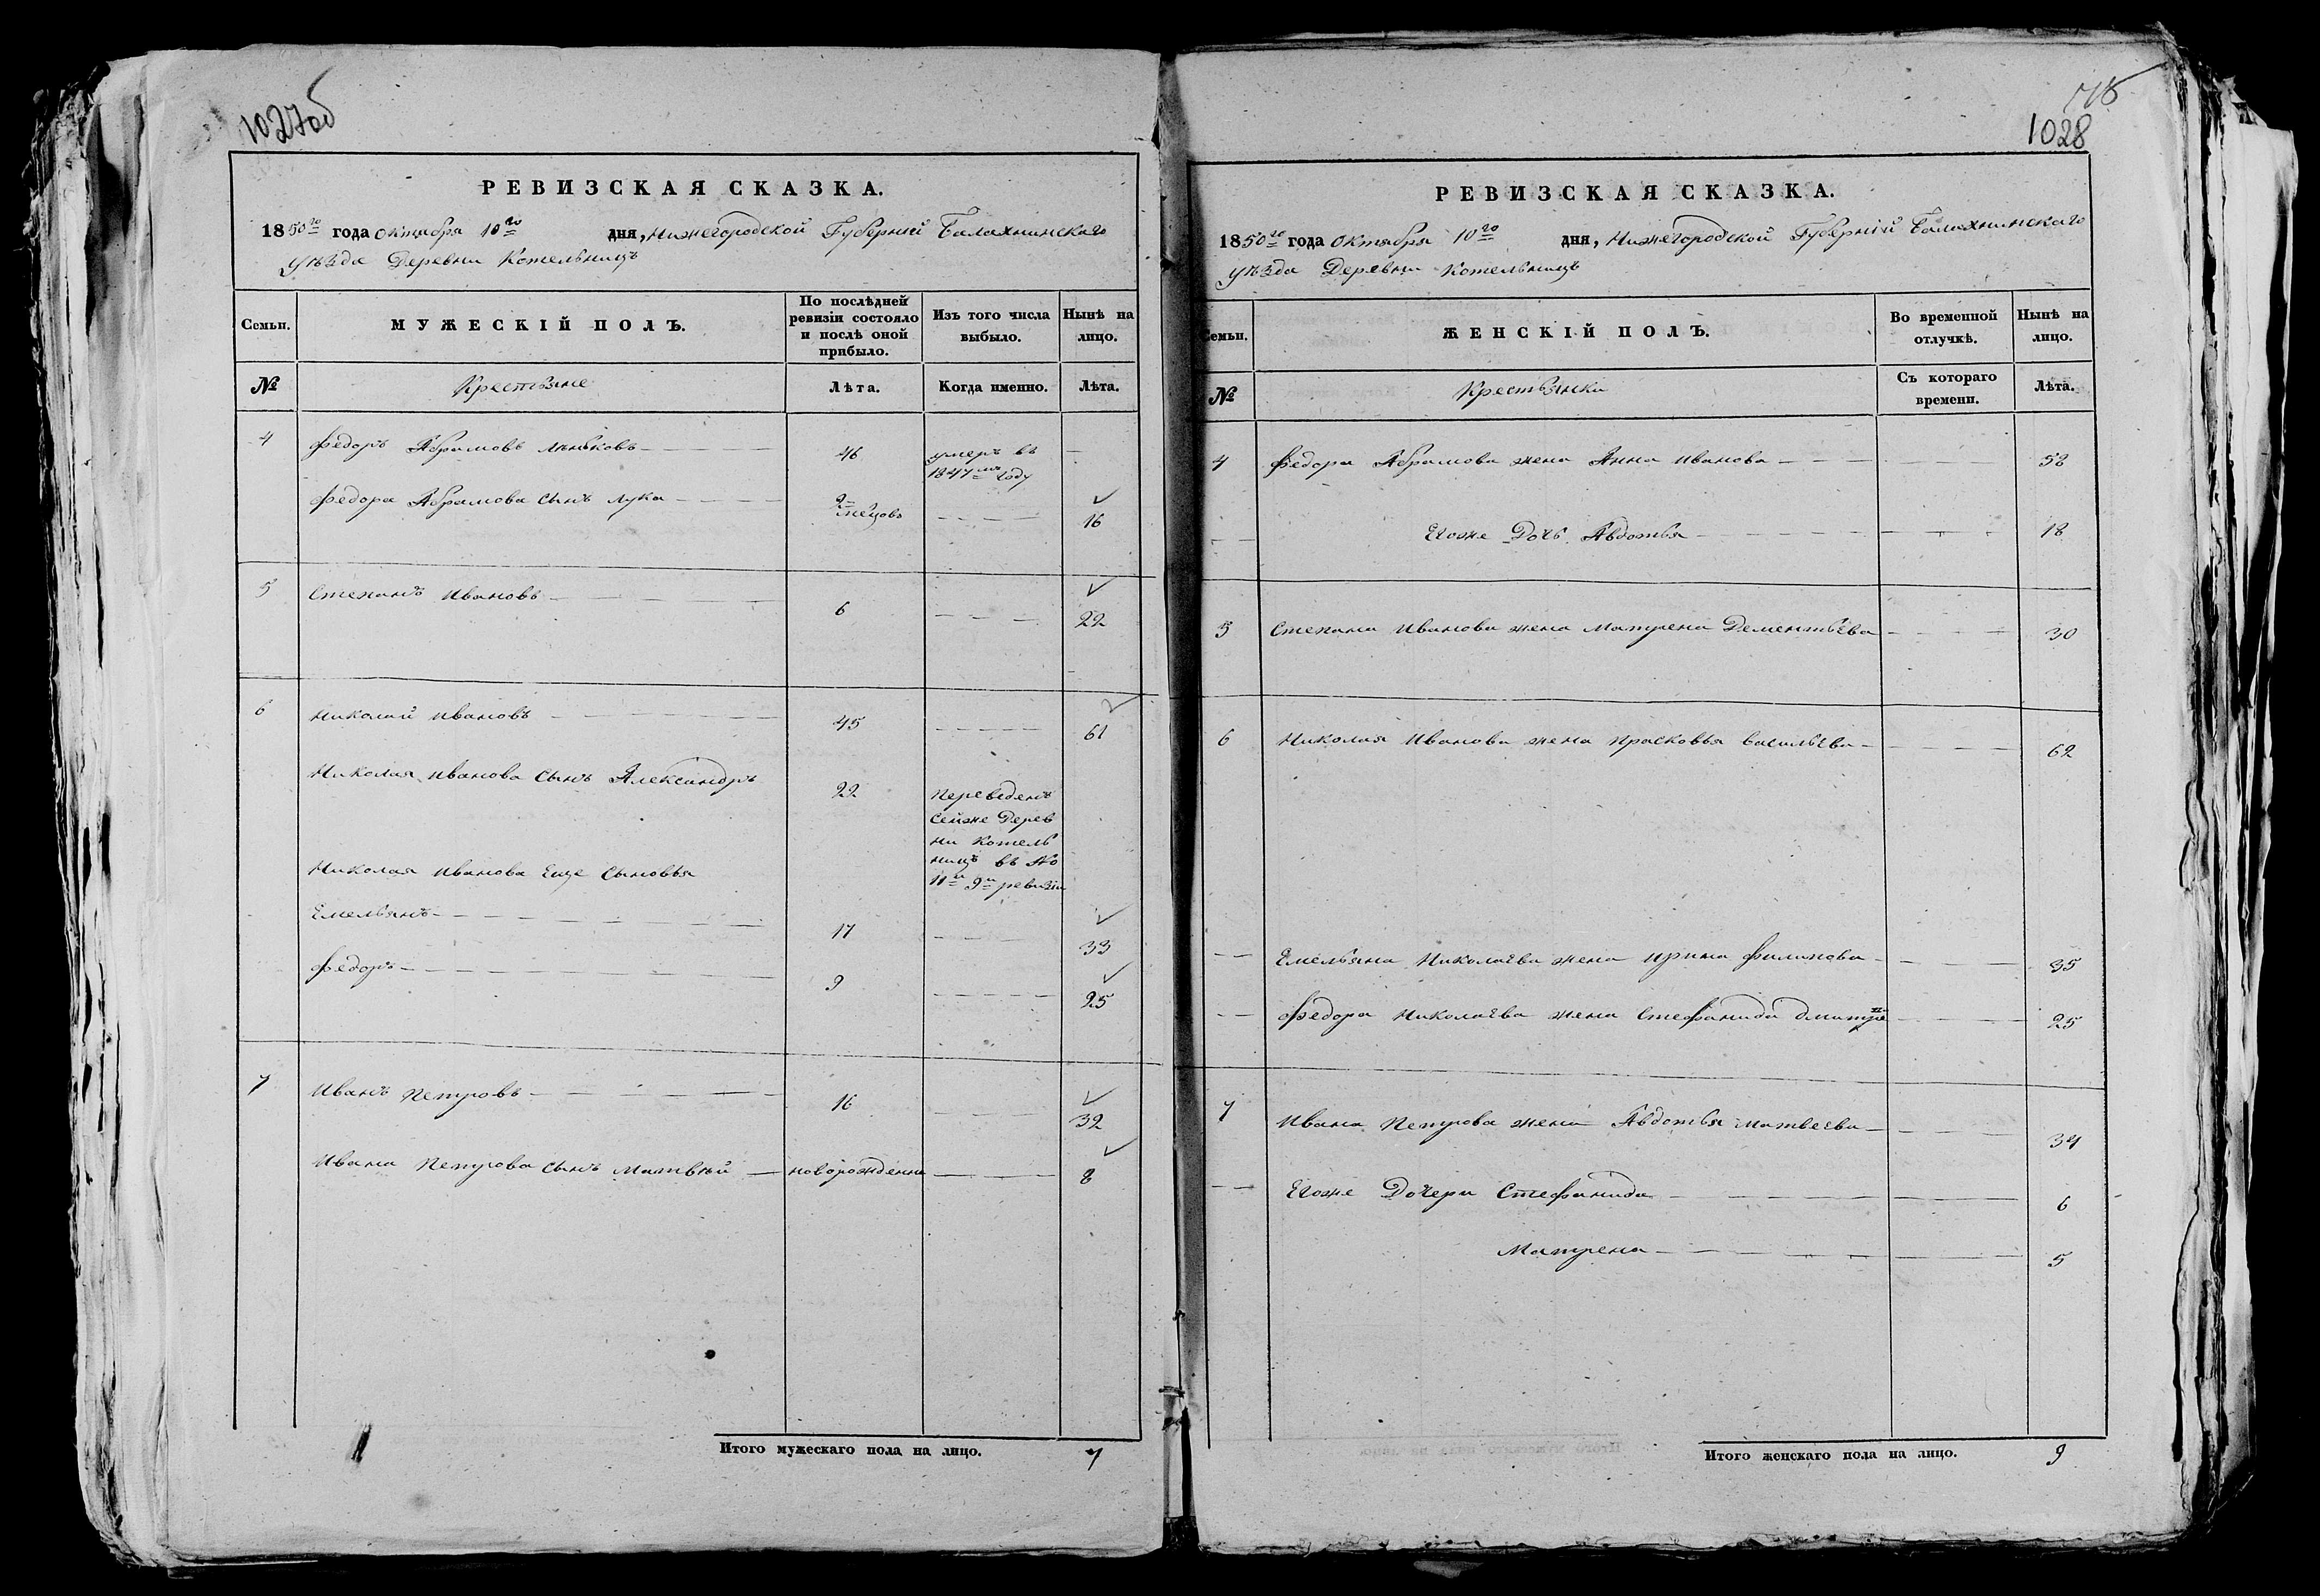 1027об
РЕВИЗСКАЯ СКАЗКА.
1850го года октября 10го дня, Нижегородской Губернии Балахнинскаго
уѣзда Деревни Котельницъ
Семьи.
МУЖЕСКІЙ ПОЛЪ.
По послѣдней ревизіи состояло и послѣ оной прибыло.
Изъ того числа выбыло.
Нынѣ на лицо.
№
Крестьяне
Лѣта.
Когда именно.
Лѣта.
4 Федоръ Абрамовъ 46 умеръ въ
1847мъ году
Федора Абрамова сынъ Лука 2 мѣсцовъ 16
5 Степанъ Ивановъ 6 22
6 Николай Ивановъ 45 61
Николая Иванова сынъ Александръ 22 переведенъ
сейже Дерев
ни Котель
ницъ въ №
11й 9й ревизіи
Николая Иванова еще сыновья
Емельянъ 17 33
Федоръ 9 25
7 Иванъ Петровъ 16 32
Ивана Петрова сынъ Матвѣй новорожденны 8
Итого мужескаго пола на лицо. 7
1028
РЕВИЗСКАЯ СКАЗКА.
1850го года октября 10го дня, Нижегородской Губерніи Балахнинскаго
уѣзда Деревни Котельницъ
Семьи.
ЖЕНСКІЙ ПОЛЪ.
Во временной отлучкѣ.
Нынѣ на лицо.
№
Крестьянки
Съ котораго времени.
Лѣта.
4 Федора Абрамова жена Анна Иванова 58
Егоже Дочь Авдотья 18
5 Степана Иванова жена Матрена Дементьева 30
6 Николая Иванова жена Прасковья Васильева 62
Емельяна Николаева жена Ирина Филипова 35
Федора Николаева жена Стефанида Дмитре 25
7 Ивана Петрова жена Авдотья Матвеева 34
Егоже Дочери Стефанида 6
Матрена 5
Итого женскаго пола на лицо. 9